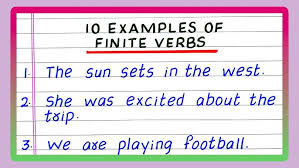 10 EXAMPLES OF
FINITE VERBS
1. The sun sets in the west.
2. She was excited about the
trip.
3. We are playing football.